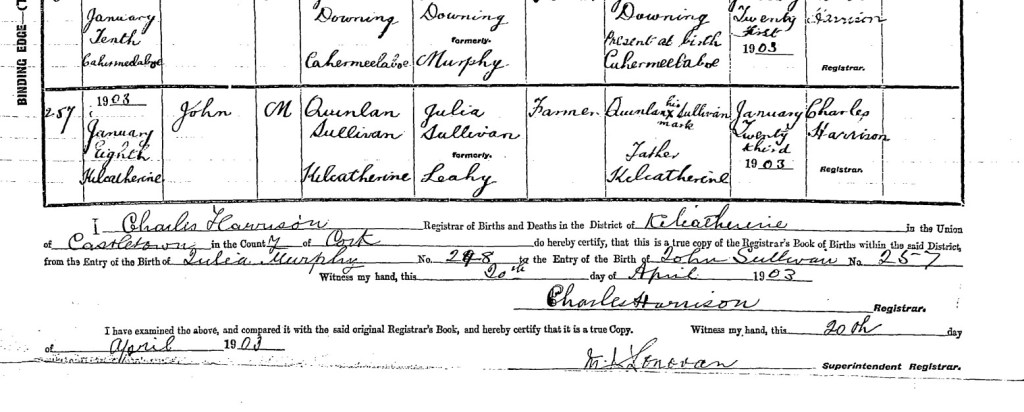 BINDING EDGE—(T
January
Tenth
Cahermeelaboe
Downing
Cahermeelaboe
Downing
formerly
Murphy
Downing
Present at birth
Cahermeelaboe
Twenty
First
1903
Harrison
Registrar.
257
1903
January
Eighth
Kilcatherine
John
M
Quinlan
Sullivan
Kilcatherine
Julia
Sullivan
formerly
Leahy
Farmer
Quinlan his x mark Sullivan
Father
Kilcatherine
January
Twenty
third
1903
Charles
Harrison
Registrar.
I Charles Harrison Registrar of Births and Deaths in the District of Kilcatherine in the Union
of Castletown in the County of Cork do hereby certify, that this is a true copy of the Registrar's Book of Births within the said District,
from the Entry of the Birth of Julia Murphy No. 248 to the Entry of the Birth of John Sullivan No. 257
Witness my hand, this 20th day of April 1903
Charles Harrison Registrar.
I have examined the above, and compared it with the said original Registrar's Book, and hereby certify that it is a true Copy. Witness my hand, this 20th day
of April 1903
Donovan Superintendent Registrar.